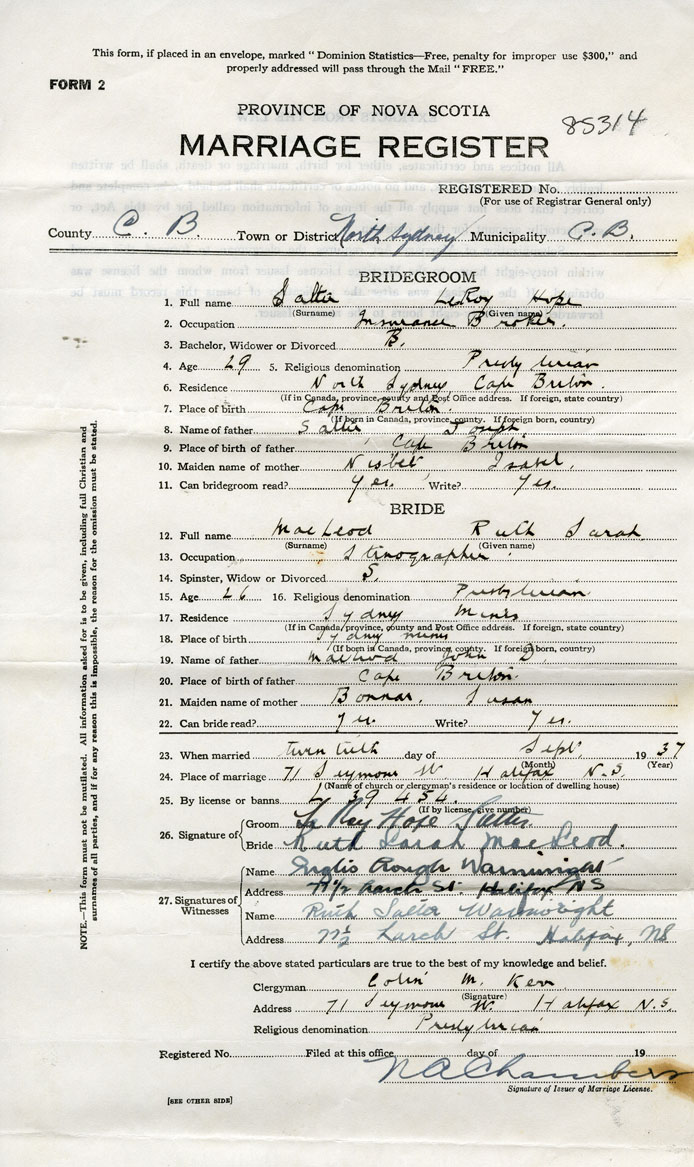 This form, if placed in an envelope, marked "Dominion Statistics—Free, penalty for improper use $300," and
properly addressed will pass through the Mail "FREE."
FORM 2
PROVINCE OF NOVA SCOTIA
85314
MARRIAGE REGISTER
REGISTERED No.
(For use of Registrar General only)
County C. B. Town or District North Sydney Municipality C. B.
BRIDEGROOM
1. Full name Salter LeRoy Hope
(Surname) (Given name)
2. Occupation Insurance Broker.
3. Bachelor, Widower or Divorced B.
4. Age 29 5. Religious denomination Presbyterian
6. Residence North Sydney Cape Breton
(If in Canada, province, county and Post Office address. If foreign, state country)
7. Place of birth Cape Breton.
(If born in Canada, province, county. If foreign born, country)
8. Name of father Salter Joseph
9. Place of birth of father Cape Breton
10. Maiden name of mother Nisbet Isabel,
11. Can bridegroom read? Yes. Write? Yes.
BRIDE
12. Full name MacLeod Ruth Sarah
(Surname) (Given name)
13. Occupation Stenographer
14. Spinster, Widow or Divorced S.
15. Age 26 16. Religious denomination Presbyterian
17. Residence Sydney Mines
(If in Canada, province, county and Post Office address. If foreign, state country)
18. Place of birth Sydney mines
(If born in Canada, province, county. If foreign born, country)
19. Name of father MacLeod John D.
20. Place of birth of father Cape Breton.
21. Maiden name of mother Bonnar, Susan
22. Can bride read? Yes. Write? Yes.
23. When married twentieth day of Sept. 1937
(Month) (Year)
24. Place of marriage 71 Seymour St Halifax N.S.
(Name of church or clergyman's residence or location of dwelling house)
25. By license or banns L 39 454.
(If by license, give number)
26. Signature of Groom LeRoy Hope Salter
Bride Ruth Sarah MacLeod.
27. Signatures of Witnesses
Name Inglis Wainwright
Address 77½ Larch St. Halifax NS
Name Ruth Salter Wainwright
Address 77½ Larch St. Halifax, NS
I certify the above stated particulars are true to the best of my knowledge and belief.
Clergyman Colin M. Kerr
(Signature)
Address 71 Seymour St. Halifax N.S.
Religious denomination Presbyterian
Registered No. Filed at this office day of 19
N A Chambers
Signature of Issuer of Marriage License.
[SEE OTHER SIDE]
NOTE.—This form must not be mutilated. All information asked for is to be given, including full Christian and
surnames of all parties, and if for any reason this is impossible, the reason for the omission must be stated.